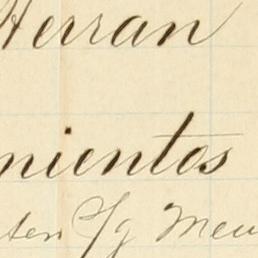 Herran
nientos
ten S/g Meu